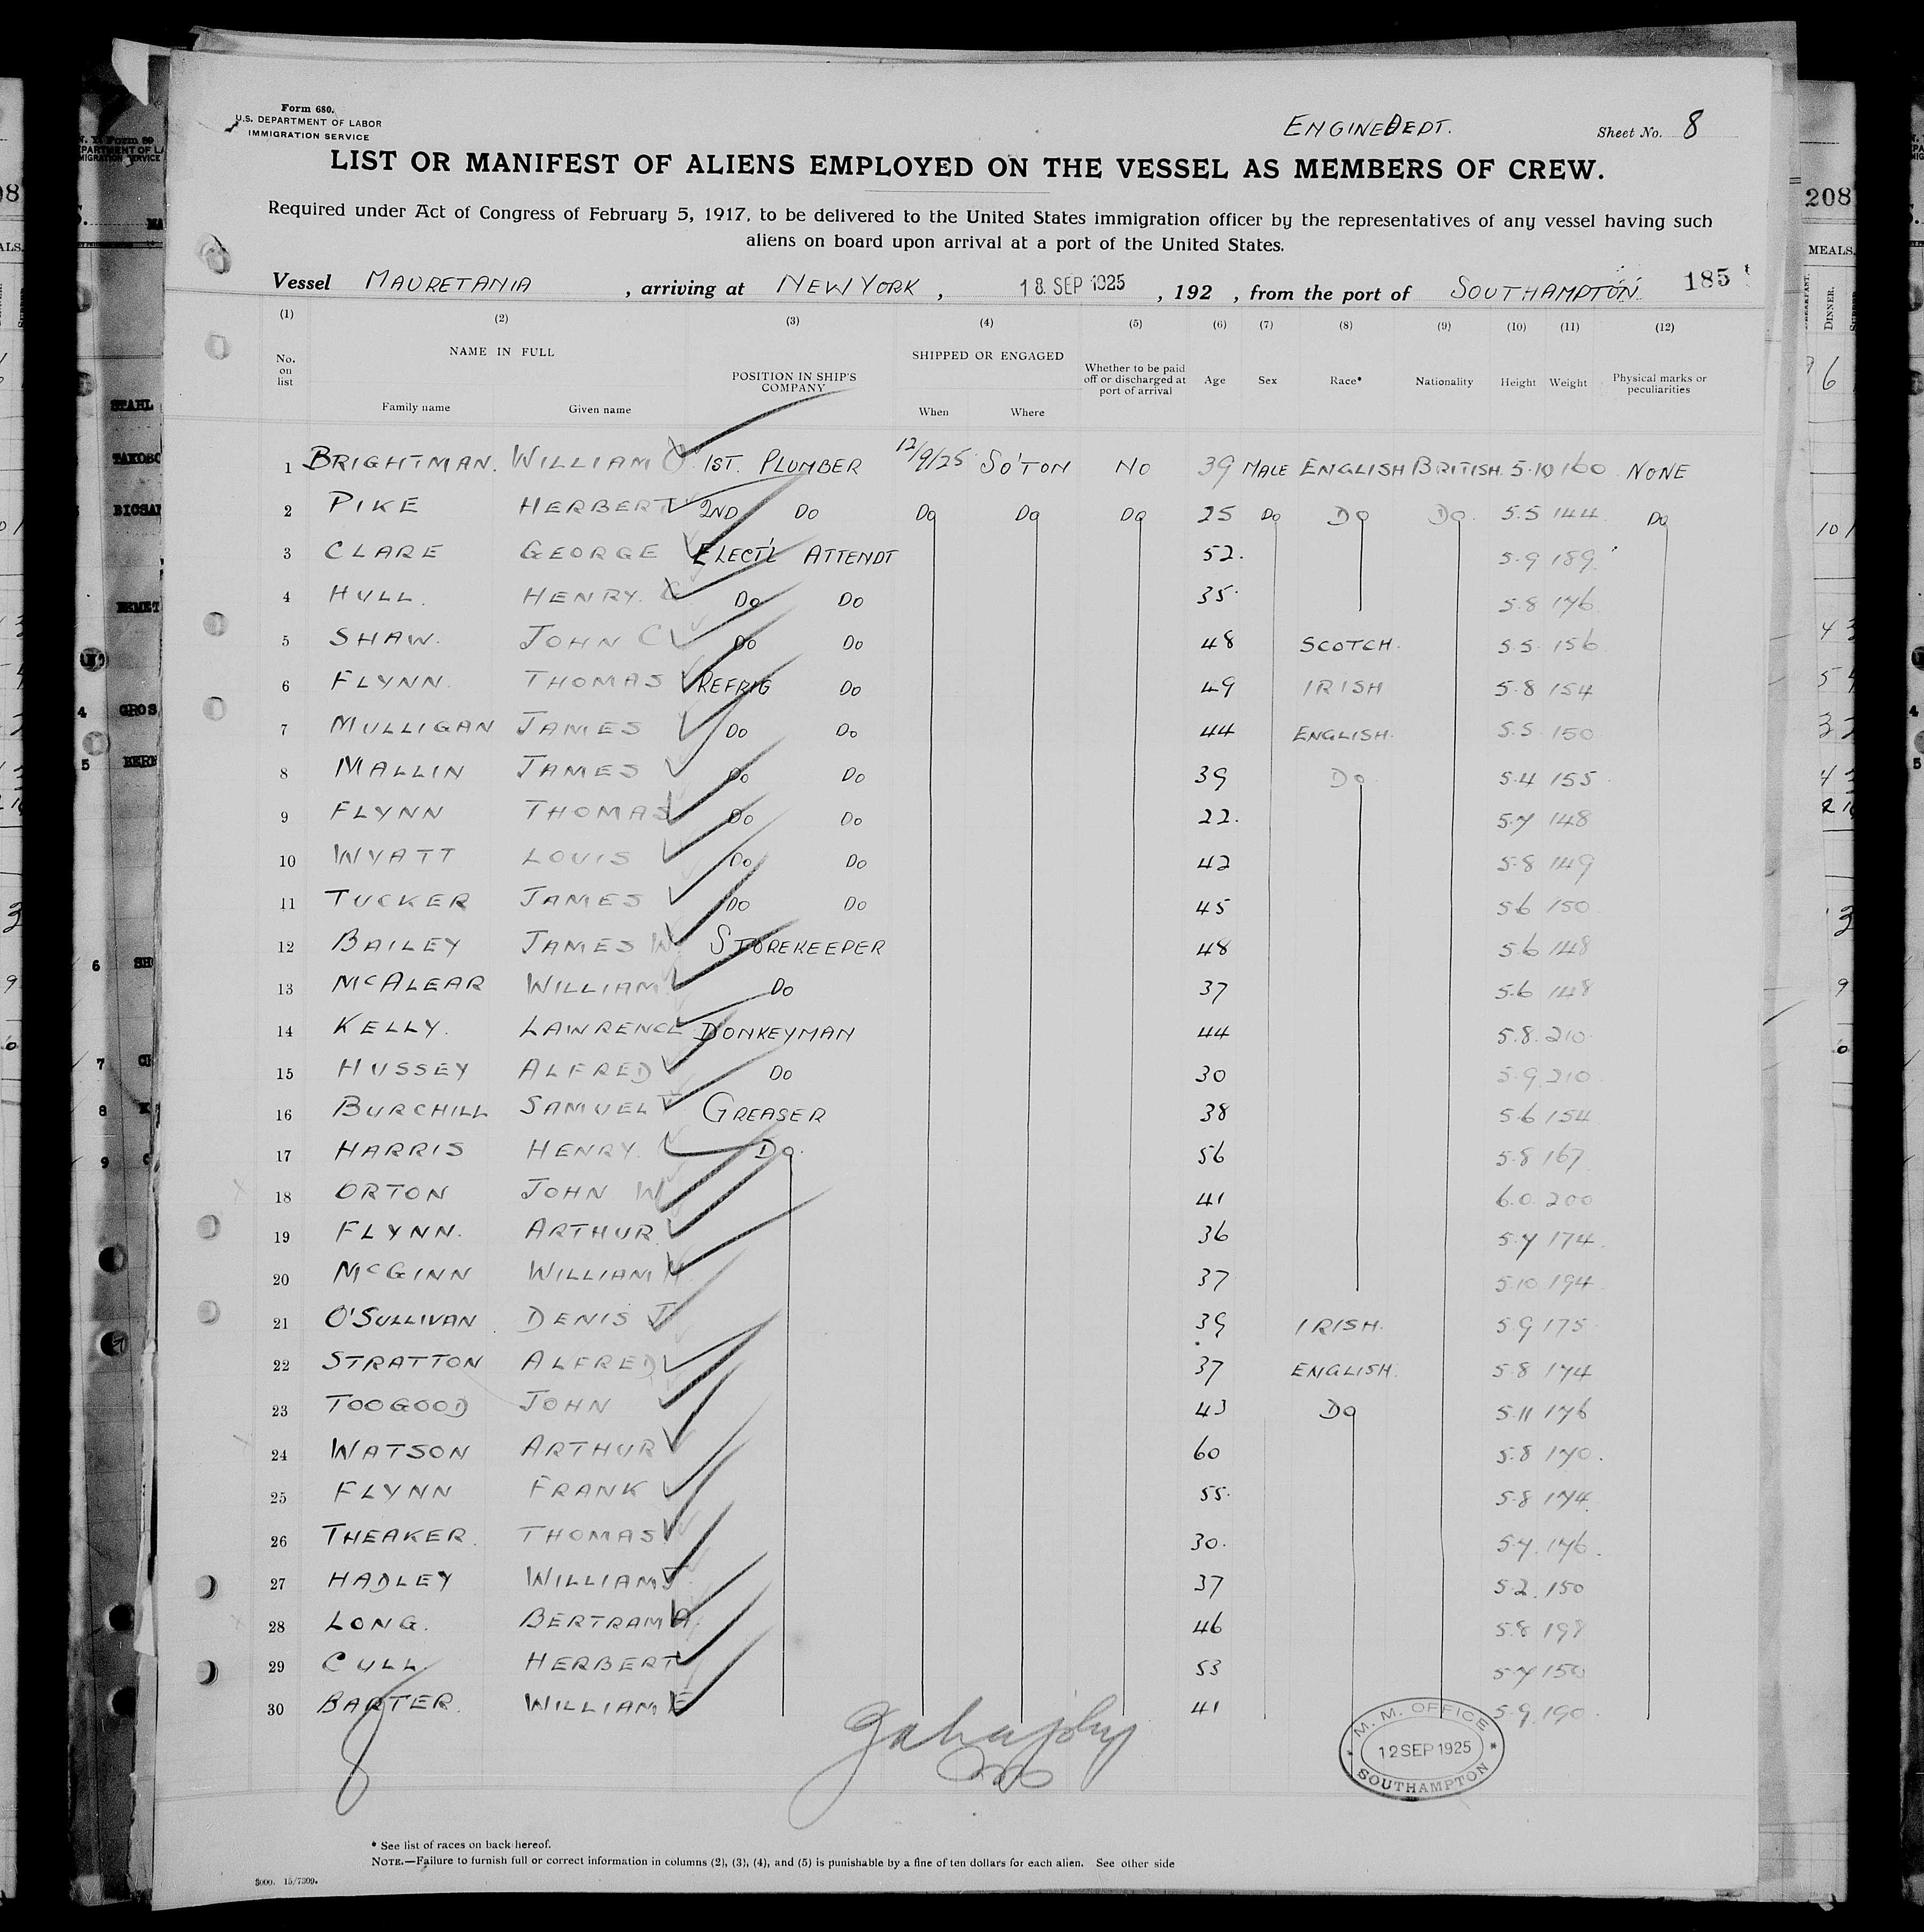 Form 680.
U.S. DEPARTMENT OF LABOR
IMMIGRATION SERVICE
ENGINE DEPT.
Sheet No. 8
LIST OR MANIFEST OF ALIENS EMPLOYED ON THE VESSEL AS MEMBERS OF CREW.
Required under Act of Congress of February 5, 1917, to be delivered to the United States immigration officer by the representatives of any vessel having such
aliens on board upon arrival at a port of the United States.
Vessel MAURETANIA, arriving at NEW YORK, 18 SEP 1925, 192 , from the port of SOUTHAMPTON 185
(1) (2) (3) (4) (5) (6) (7) (8) (9) (10) (11) (12)
No. on list NAME IN FULL POSITION IN SHIP'S COMPANY SHIPPED OR ENGAGED Whether to be paid off or discharged at port of arrival Age Sex Race* Nationality Height Weight Physical marks or peculiarities
Family name Given name When Where
1 BRIGHTMAN. WILLIAM O. 1ST. PLUMBER 12/9/25 SO'TON NO 39 MALE ENGLISH BRITISH. 5.10 160 NONE
2 PIKE HERBERT 2ND DO DO DO DO 25 DO DO DO. 5.5 144 DO
3 CLARE GEORGE ELECT'L ATTENDT 52. 5.9 189
4 HULL. HENRY. C DO DO 35. 5.8 176
5 SHAW. JOHN C DO DO 48 SCOTCH. 5.5 156
6 FLYNN. THOMAS REFRIG DO 49 IRISH 5.8 154
7 MULLIGAN JAMES DO DO 44 ENGLISH. 5.5 150
8 MALLIN JAMES DO DO 39 DO 5.4 155
9 FLYNN THOMAS DO DO 22. 5.7 148
10 WYATT LOUIS DO DO 42 5.8 149
11 TUCKER JAMES DO DO 45 5.6 150
12 BAILEY JAMES W. STOREKEEPER 48 5.6 148
13 McALEAR WILLIAM DO 37 5.6 148
14 KELLY. LAWRENCE DONKEYMAN 44 5.8. 210
15 HUSSEY ALFRED DO 30 5.9 210
16 BURCHILL SAMUEL GREASER 38 5.6 154
17 HARRIS HENRY. DO. 56 5.8 167
18 ORTON JOHN W 41 6.0. 200
19 FLYNN. ARTHUR 36 5.7 174
20 McGINN WILLIAM 37 5.10 194
21 O'SULLIVAN DENIS J 39 IRISH. 5.9 175
22 STRATTON ALFRED 37 ENGLISH. 5.8 174
23 TOOGOOD JOHN 43 DO 5.11 176
24 WATSON ARTHUR 60 5.8 170.
25 FLYNN FRANK 55. 5.8 174
26 THEAKER. THOMAS 30. 5.7. 176.
27 HADLEY WILLIAM J 37 5.2. 150
28 LONG. BERTRAM A. 46 5.8 198
29 CULL HERBERT 53 5.7 150
30 BARTER. WILLIAM E 41 5.9. 190.
M. M. OFFICE
12 SEP 1925
SOUTHAMPTON
* See list of races on back hereof.
NOTE.—Failure to furnish full or correct information in columns (2), (3), (4), and (5) is punishable by a fine of ten dollars for each alien. See other side
208
MEALS.
DINNER.